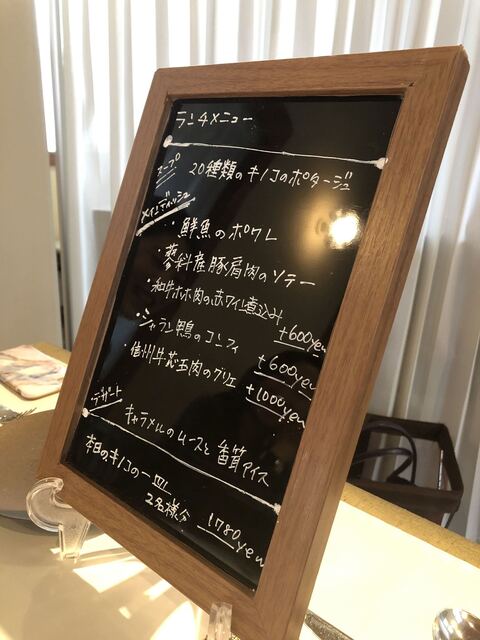 ランチメニュー
スープ
20種類のキノコのポタージュ
メインディッシュ
・鮮魚のポワレ
・蓼科産豚肩肉のソテー
・和牛ホホ肉の赤ワイン煮込み
+600yen
・シャラン鴨のコンフィ
+600yen
・信州牛芯玉肉のグリエ
+1000yen
デザート
キャラメルのムースと番茶アイス
本日のキノコの一皿
2名様分 1780yen